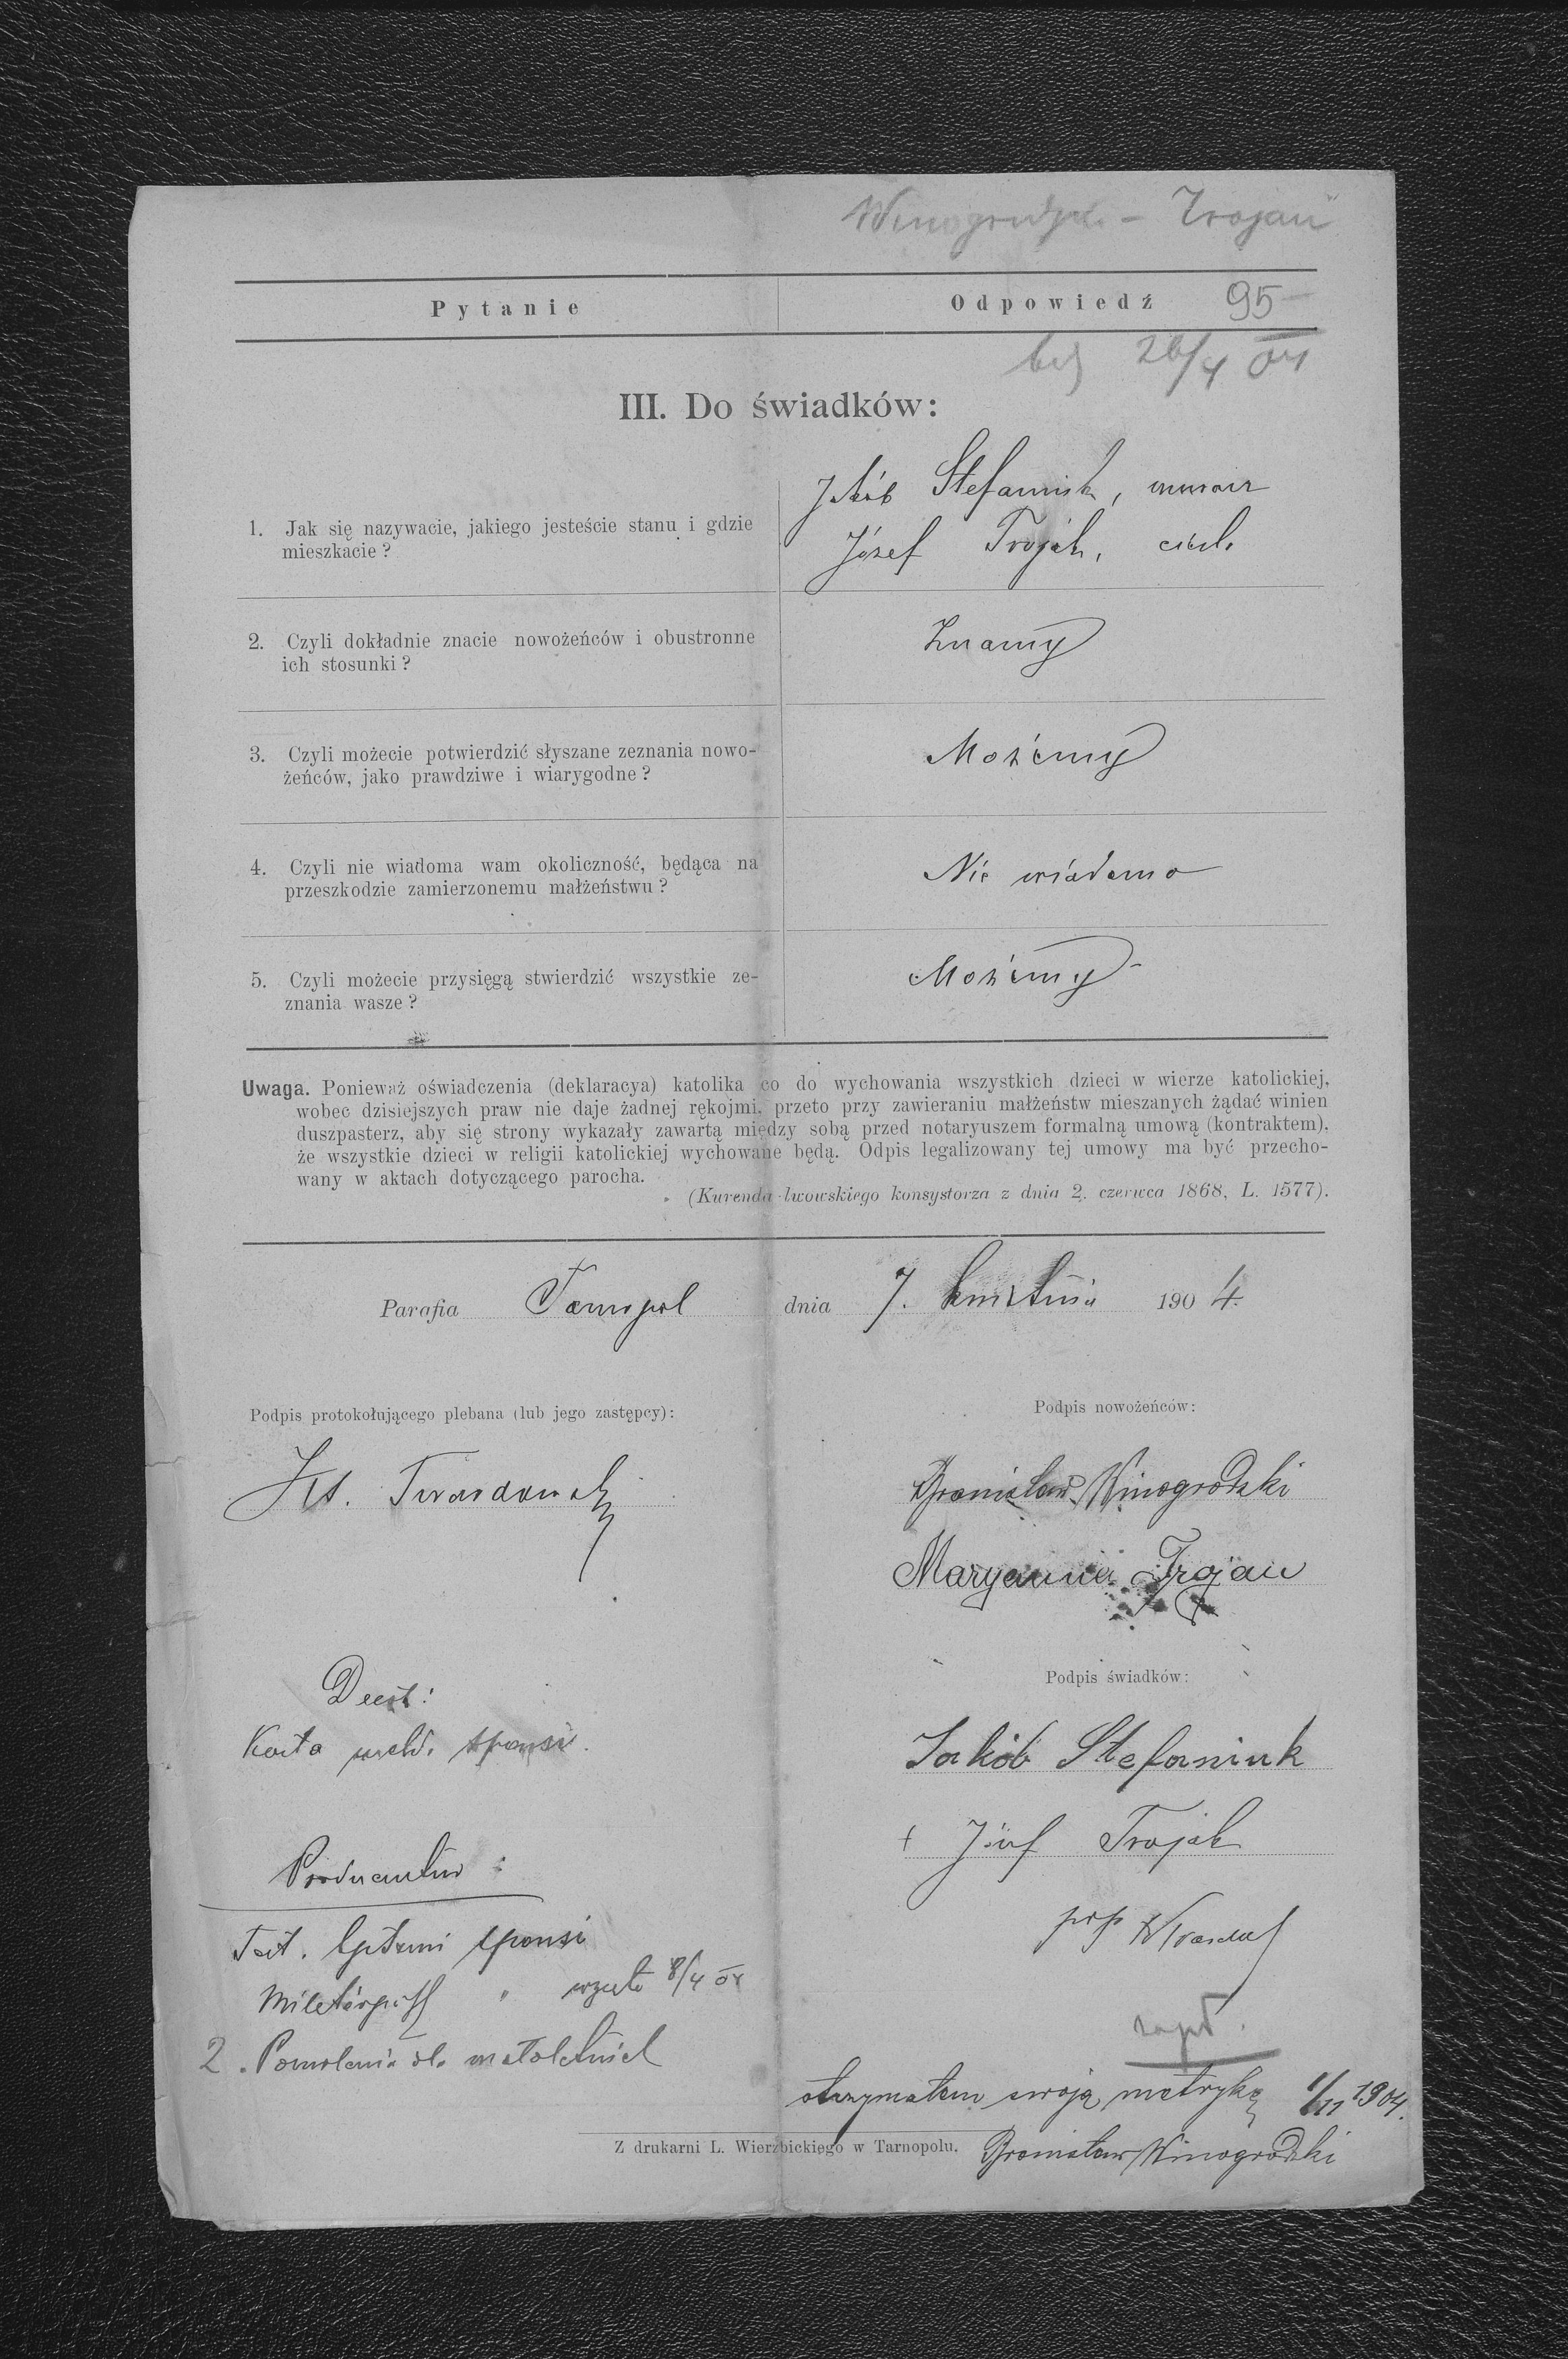 Winogrodzki - Trojan
Pytanie Odpowiedź 95
26/4 04
III. Do świadków:
Jakób Stefaniuk, murarz
1. Jak się nazywacie, jakiego jesteście stanu i gdzie
mieszkacie?
Józef Trojak, cieśl.
2. Czyli dokładnie znacie nowożeńców i obustronne
ich stosunki?
Znamy
3. Czyli możecie potwierdzić słyszane zeznania nowo-
żeńców, jako prawdziwe i wiarygodne?
Możemy
4. Czyli nie wiadoma wam okoliczność, będąca na
przeszkodzie zamierzonemu małżeństwu?
Nie wiadomo
5. Czyli możecie przysięgą stwierdzić wszystkie ze-
znania wasze?
Możemy
Uwaga. Ponieważ oświadczenia (deklaracya) katolika co do wychowania wszystkich dzieci w wierze katolickiej,
wobec dzisiejszych praw nie daje żadnej rękojmi, przeto przy zawieraniu małżeństw mieszanych żądać winien
duszpasterz, aby się strony wykazały zawartą między sobą przed notaryuszem formalną umową (kontraktem),
że wszystkie dzieci w religii katolickiej wychowane będą. Odpis legalizowany tej umowy ma być przecho-
wany w aktach dotyczącego parocha.
(Kurenda lwowskiego konsystorza z dnia 2. czerwca 1868, L. 1577).
Parafia Tarnopol dnia 7. kwietnia 1904.
Podpis protokołującego plebana (lub jego zastępcy):
Podpis nowożeńców:
Twardowski
Bronisław Winogrodzki
Maryanna Trojan
Podpis świadków:
Deest:
Karta meld. sponsi.
Jakób Stefaniuk
+ Józef Trojak
Producantur:
Test. baptismi sponsi
Militärpass " wzięto 8/4 04
2. Pozwolenie dla małoletniej
zapł.
otrzymałem swoją metrykę 1/11 1904.
Z drukarni L. Wierzbickiego w Tarnopolu.
Bronisław Winogrodzki